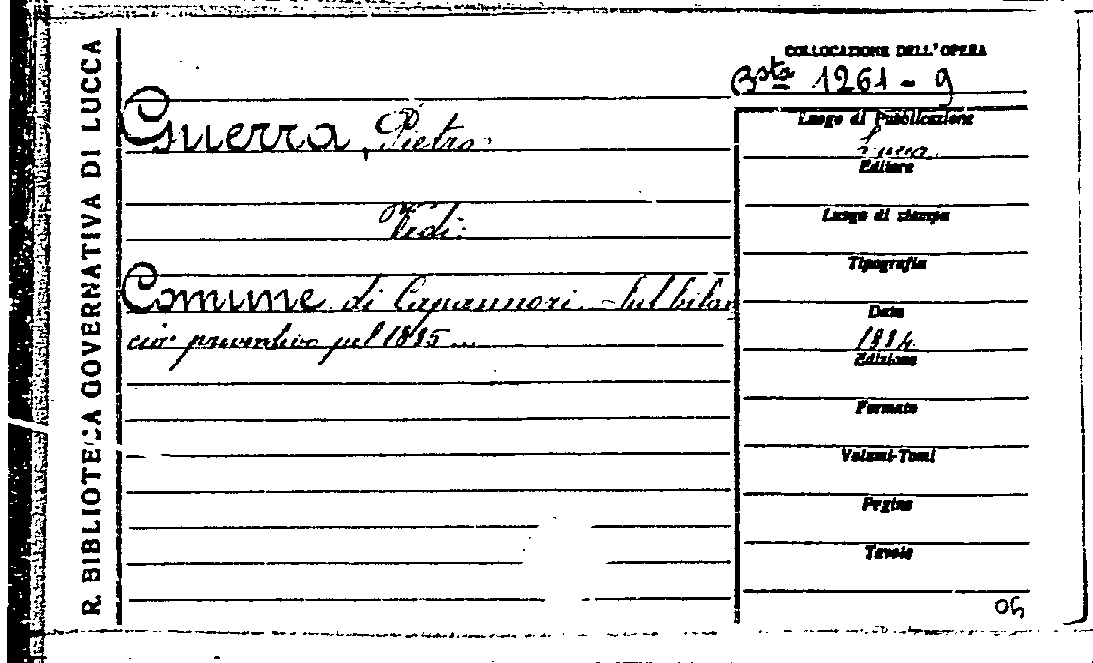 R. BIBLIOTECA GOVERNATIVA DI LUCCA
COLLOCAZIONE DELL'OPERA
Bsta 1261-9
Guerra, Pietro.
Vedi:
Comune di Capannori. - Sul bilan
cio preventivo pel 1885...
Luogo di Pubblicazione
Lucca
Editore
Luogo di stampa
Tipografia
Data
1884
Edizione
Formato
Volumi-Tomi
Pagine
Tavole